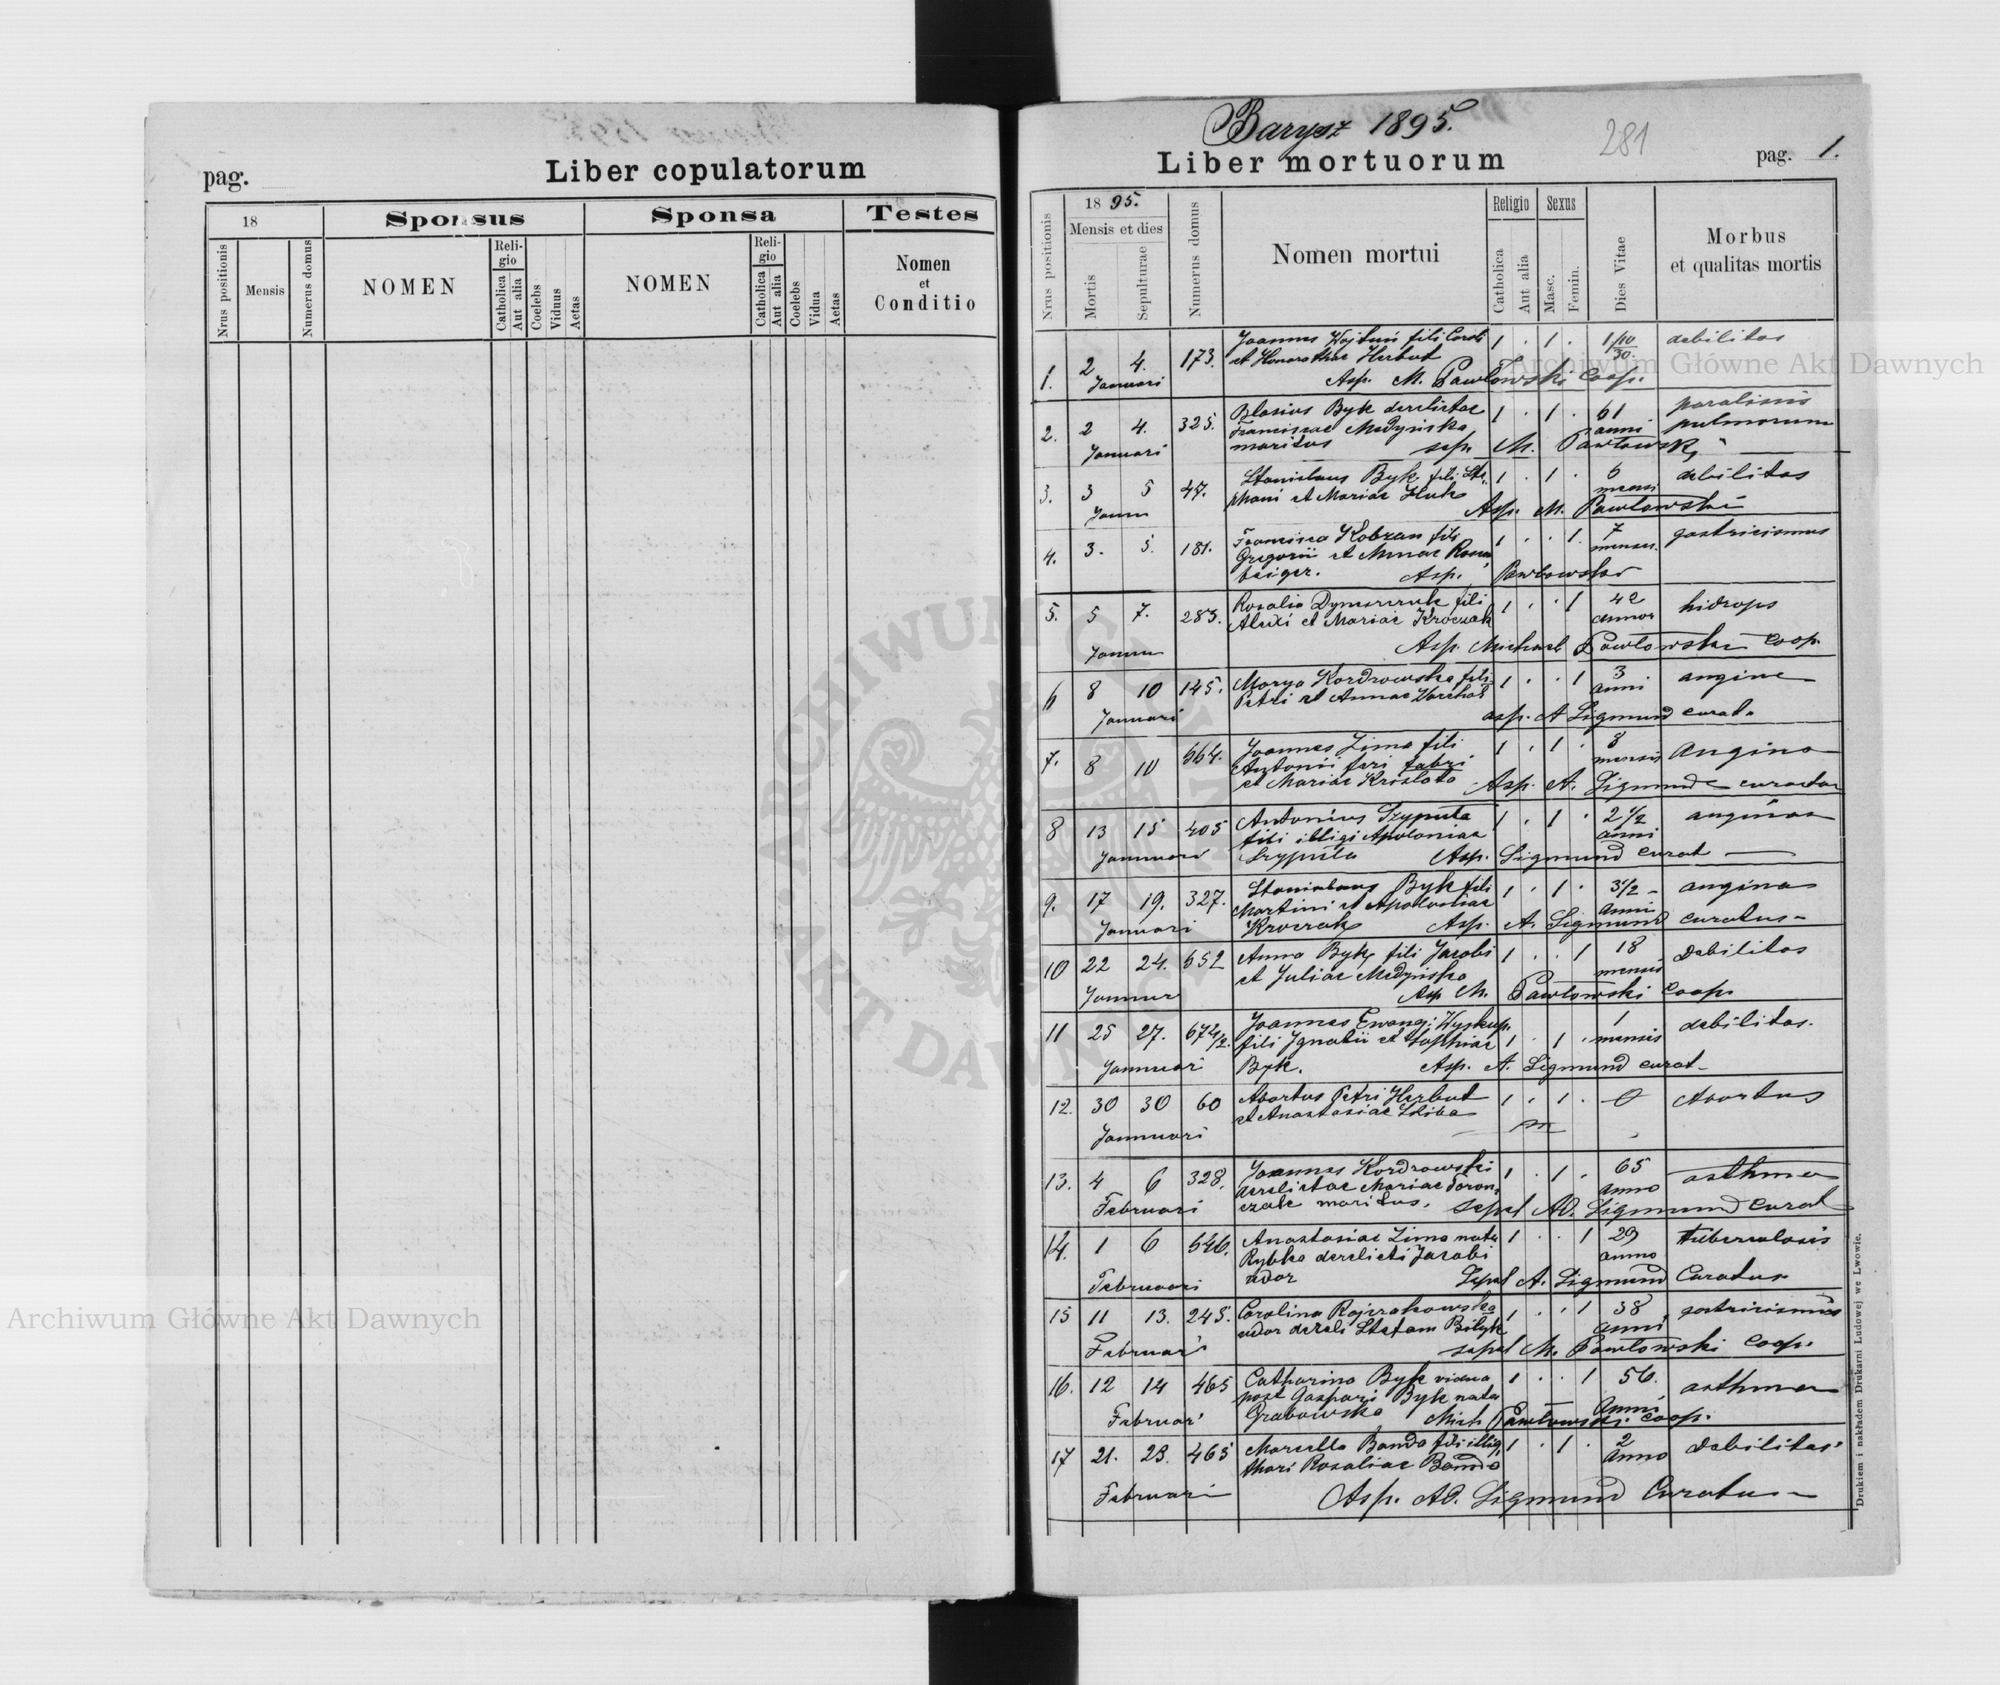 pag.
Liber copulatorum
18
Sponsus
Sponsa
Testes
Nrus positionis
Mensis
Numerus domus
NOMEN
Religio
Catholica
Aut alia
Coelebs
Viduus
Aetas
NOMEN
Religio
Catholica
Aut alia
Coelebs
Vidua
Aetas
Nomen
et
Conditio
Barysz 1895.
281
Liber mortuorum
pag. 1.
Nrus positionis
1895.
Mensis et dies
Mortis
Sepulturae
Numerus domus
Nomen mortui
Religio
Catholica
Aut alia
Sexus
Masc.
Femin.
Dies Vitae
Morbus
et qualitas mortis
1. 2 4. 173. Joannes fili
et Herbut
1 . 1 . debilitas
Januari
Asp. M. Pawłowski Coop.
2. 2 4. 325. Blasius Byk derelictae
Franciscae Medyńska
maritus
1 . 1 . 61
anni
pulmorum
Januari
sep. M. Pawłowski
3. 3 5 47. Stanislaus Byk fili Ste
phani et Mariae
1 . 1 . 6
debilitas
Asp. M. Pawłowski
4. 3. 5. 181. Francisca Kobzan fili
Gregorii et
1 . . 1. 7
menses.
gastricismus
Asp. Pawłowski
5. 5 7. 283. Rosalia fili
et Mariae Kroczak
1 . . 1 42
hidrops
Asp. Michael Pawłowski Coop.
6 8 10 145. Marya Kordrowska fili
Petri et Annae
1 . . 1 3
anni
angine
Januari
asp. A Sigmund curat.
7. 8 10 564. Joannes Zima fili
Antonii
et Mariae
1 . 1 . 8
mensis
angina
Asp. A. Sigmund
8 13 15 405 Antonius Szypuła
fili illigi Apoloniae
Szypuła
1 . 1 . 2 1/2
anni
anginae
Asp. Sigmund curat
9. 17 19. 327. Stanislaus Byk fili
Martini et Apoloniae
Kroczak
1 . 1 . 3 1/2
anni
angina
Januari
Asp. A. Sigmund curatus
10 22 24. 652 Anna Byk fili Jacobi
et Juliae Medyńska
1 . . 1 18
mensis
Debilitas
Asp M. Pawłowski Coop.
11 25 27. Joannes
fili Ignatii et Sophiae
Byk.
1 . 1 . 1
mensis
debilitas.
Asp. A. Sigmund curat
12. 30 30 60 Abortus Petri Herbut
et Anastasiae
1 . 1 . 0
Abortus
13. 4 6 328. Joannes Kordrowski
derelictae Mariae
maritus.
1 . 1 . 65
anno
asthma
Februari
sepel AD. Sigmund Curat
14. 1 6 546. Anastasiae Zima nata
Rybka derelicti Jacobi
uxor
1 . . 1 29
anno
tuberculosis
Februari
Sepel A. Sigmund Curatus
15 11 13. 245. Carolina
uxor
1 . . 1 38
anni
gastricismus
Februari
sepel M. Pawłowski Coop.
16. 12 14 465 Catharina Byk vidua
post Gaspari Byk nata
Grabowska
1 . . 1 56.
anni
asthma
Februar
Mich Pawłowski Coop.
17 21. 23. 465 Marcella Banda fili illig
Rosaliae Banda
1 . 1 . 2
anno
Debilitas
Februari
Asp. AD. Sigmund Curatus
Drukiem i nakładem Drukarni Ludowej we Lwowie.
Archiwum Główne Akt Dawnych
Archiwum Główne Akt Dawnych
ARCHIWUM GŁÓWNE AKT DAWNYCH